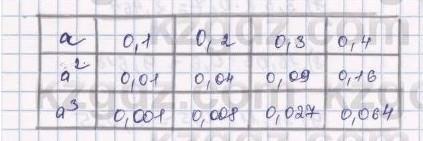 a 0,1 0,2 0,3 0,4
a² 0,01 0,04 0,09 0,16
a³ 0,001 0,008 0,027 0,064